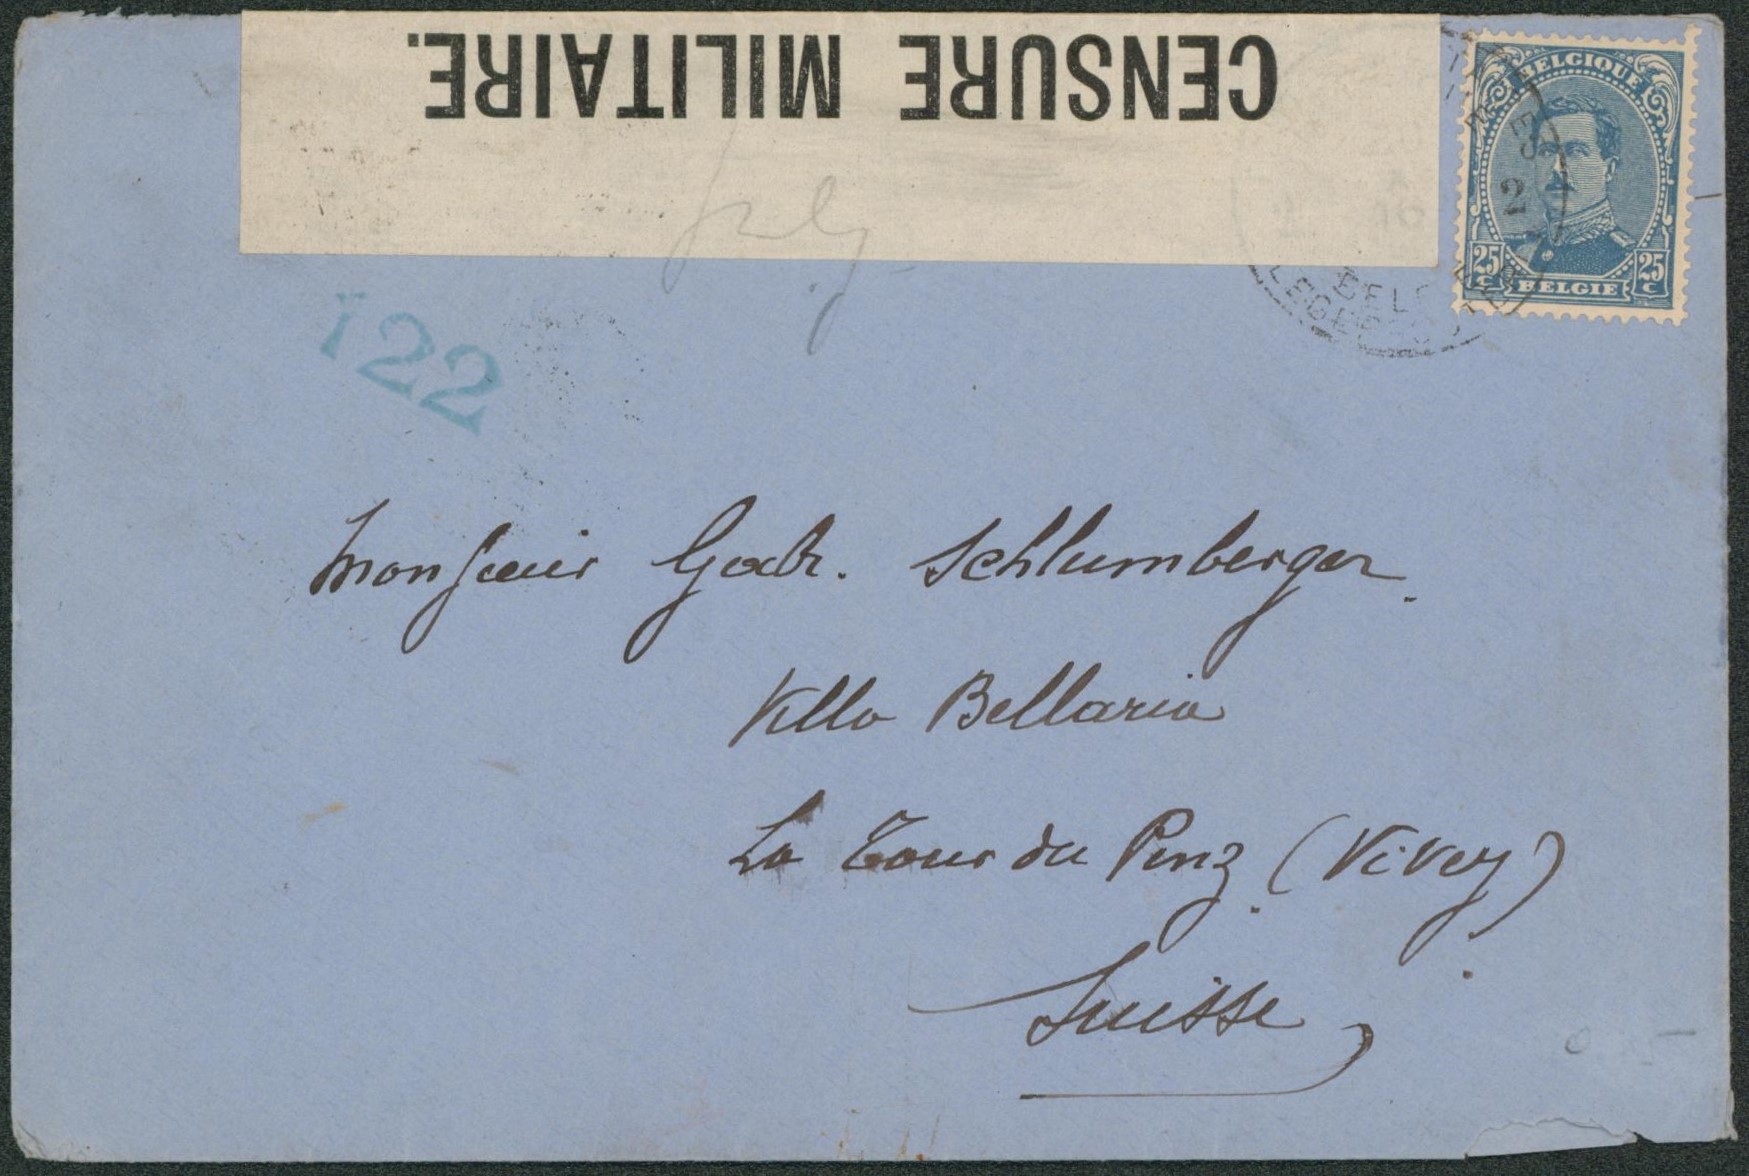 CENSURE MILITAIRE.
BELGIQUE
25 25
C C
BELGIE
2
122
Monsieur Gabr. Schlumberger.
Villa Bellaria
La Tour du Pinz. (Vevey)
Suisse